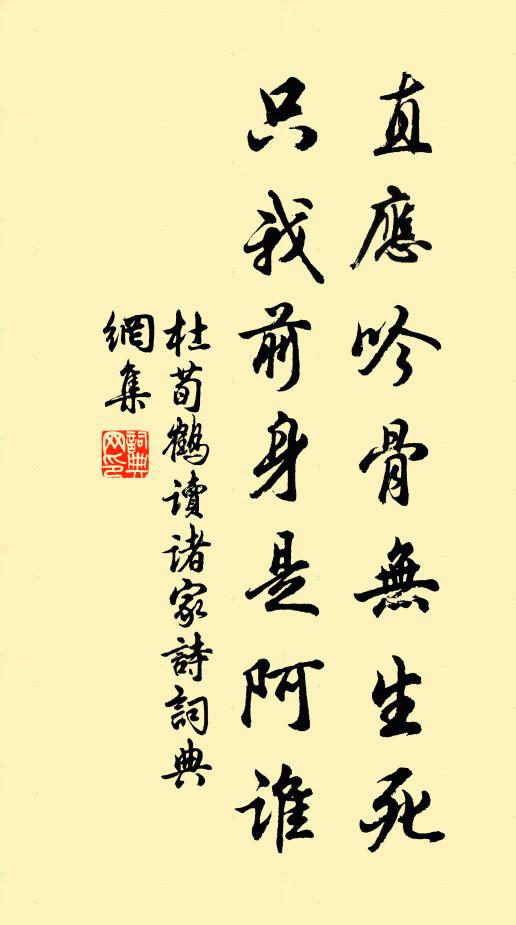 直應吟骨無生死
只我前身是阿誰
杜荀鶴讀诸家詩詞典
網集
詞典网印